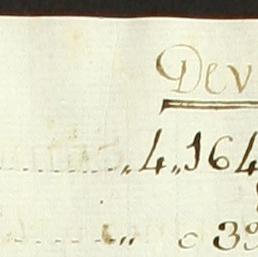 Dev
„4„164
„ 039